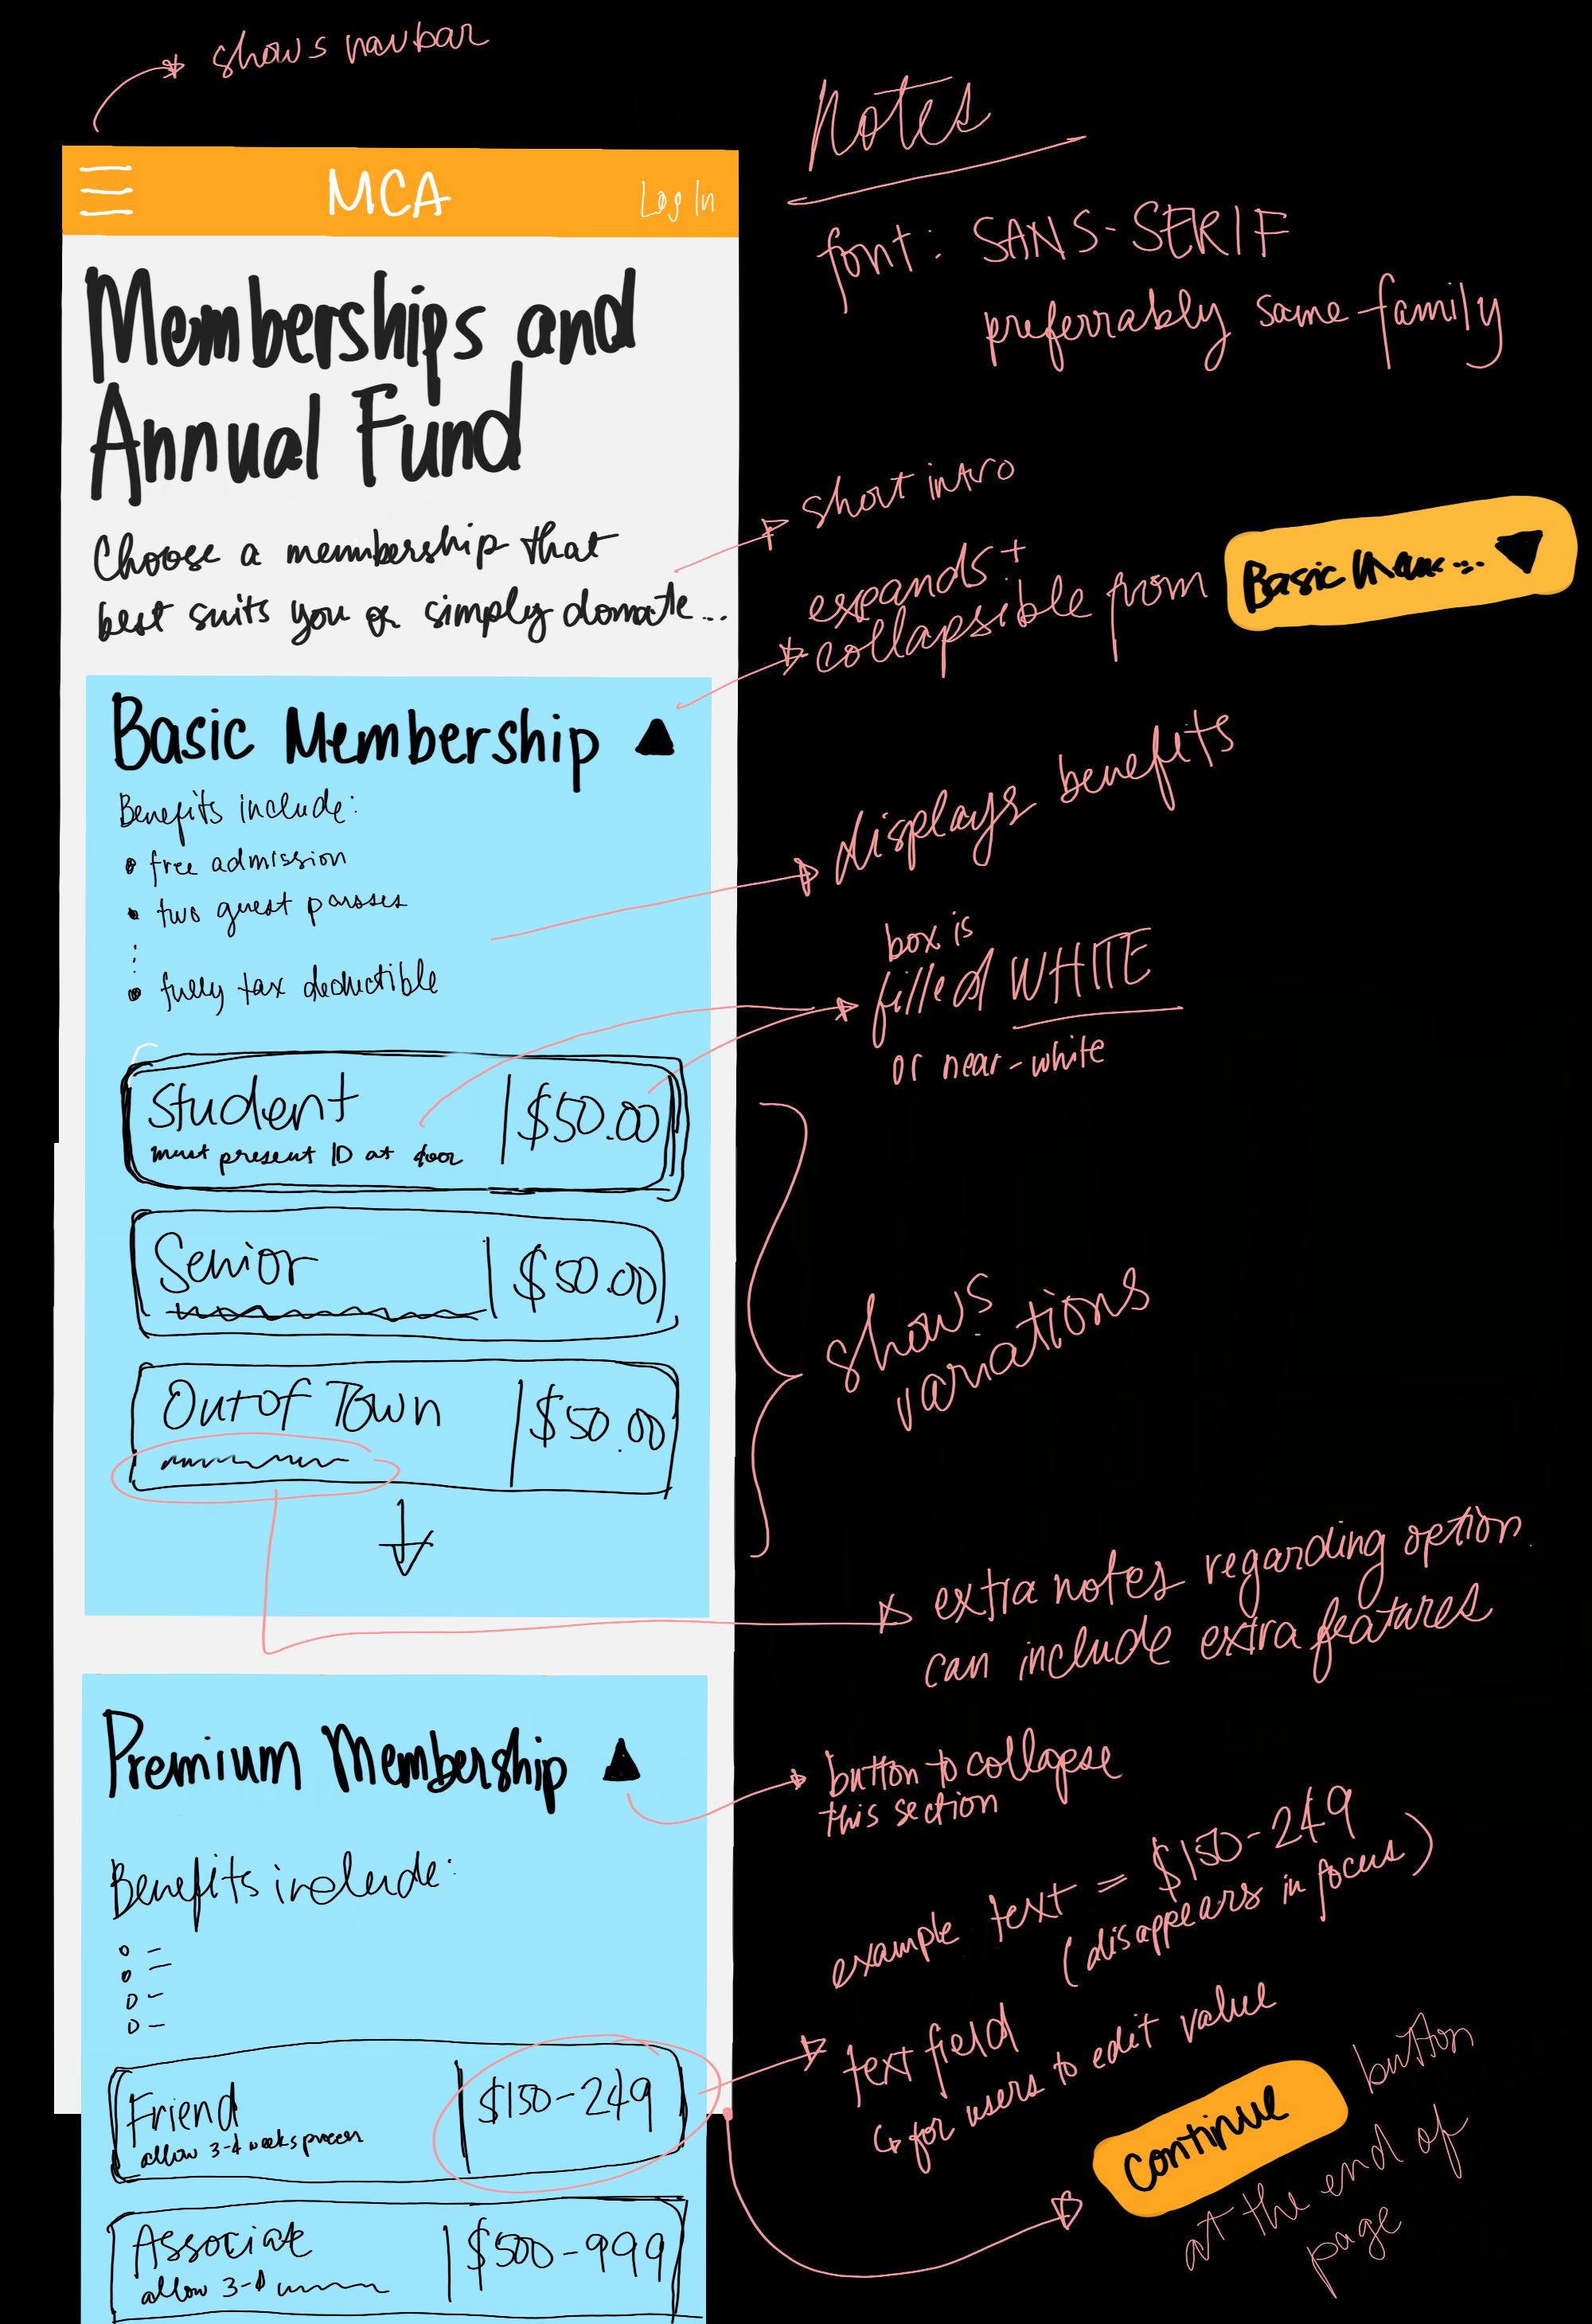 shows navbar
MCA
Log In
Memberships and
Annual Fund
Choose a membership that
best suits you or simply donate...
Basic Membership
Benefits include:
free admission
two guest passes
fully tax deductible
Student
must present ID at door
$50.00
Senior
$50.00
Out of Town
$50.00
Premium Membership
Benefits include:
Friend
allow 3-4 weeks process
$150-249
Associate
allow 3-4
$500-999
Notes
font: SANS-SERIF
preferrably same-family
short intro
expands +
collapsible from
Basic Mem...
displays benefits
box is
filled WHITE
or near-white
shows
variations
extra notes regarding option.
can include extra features
button to collapse
this section
example text = $150-249
(disappears in focus)
text field
↳ for users to edit value
Continue
button
at the end of
page